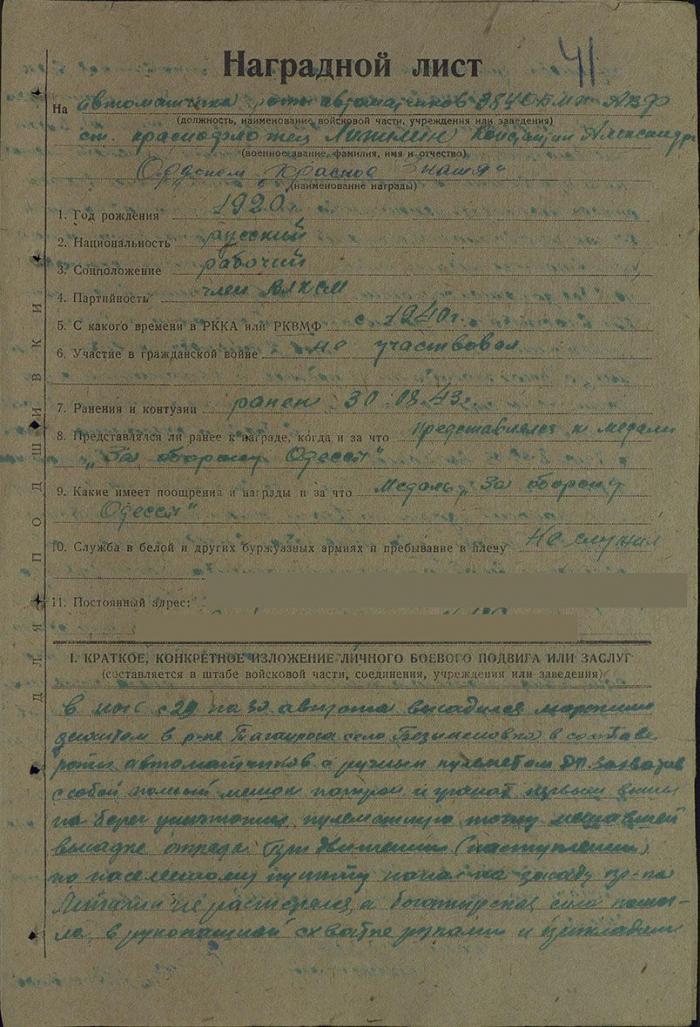 41
Наградной лист
На автоматчика роты автоматчиков 384 ОБМП
(должность, наименование войсковой части, учреждения или заведения)
ст. краснофлотец
(военное звание, фамилия, имя и отчество)
Орденом "Красное Знамя"
(наименование награды)
1. Год рождения 1920 г.
2. Национальность русский
3. Соцположение рабочий
4. Партийность член ВЛКСМ
5. С какого времени в РККА или РКВМФ с 1940 г.
6. Участие в гражданской войне не участвовал
7. Ранения и контузии ранен 30.08.43 г.
8. Представлялся ли ранее к награде, когда и за что Представлялся к медали
„За оборону Одессы"
9. Какие имеет поощрения и награды и за что Медаль „За оборону
Одессы"
10. Служба в белой и других буржуазных армиях и пребывание в плену Не служил
11. Постоянный адрес:
ДЛЯ ПОДШИВКИ
I. КРАТКОЕ, КОНКРЕТНОЕ ИЗЛОЖЕНИЕ ЛИЧНОГО БОЕВОГО ПОДВИГА ИЛИ ЗАСЛУГ
(составляется в штабе войсковой части, соединения, учреждения или заведения)
В ночь с 29 на 30 августа высадился морским
десантом в р-не Таганрога село Безымянновка в составе
роты автоматчиков с ручным пулеметом ДП. захватив
с собой полный мешок патрон и гранат первым
на берег уничтожил пулеметную точку мешавшей
высадке отряда При движении (наступлении)
по населенному пункту на засаду пр-ка
не растерялся, а богатырская сила помог-
ла, в рукопашной схватке руками и прикладом